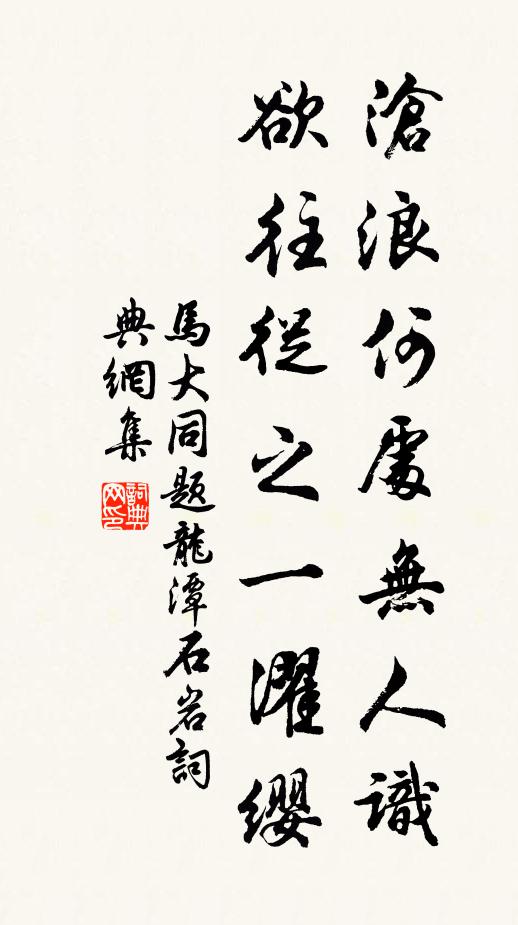 滄浪何處無人識
欲往從之一濯纓
馬大同題龍潭石岩詞
典網集
詞典網印